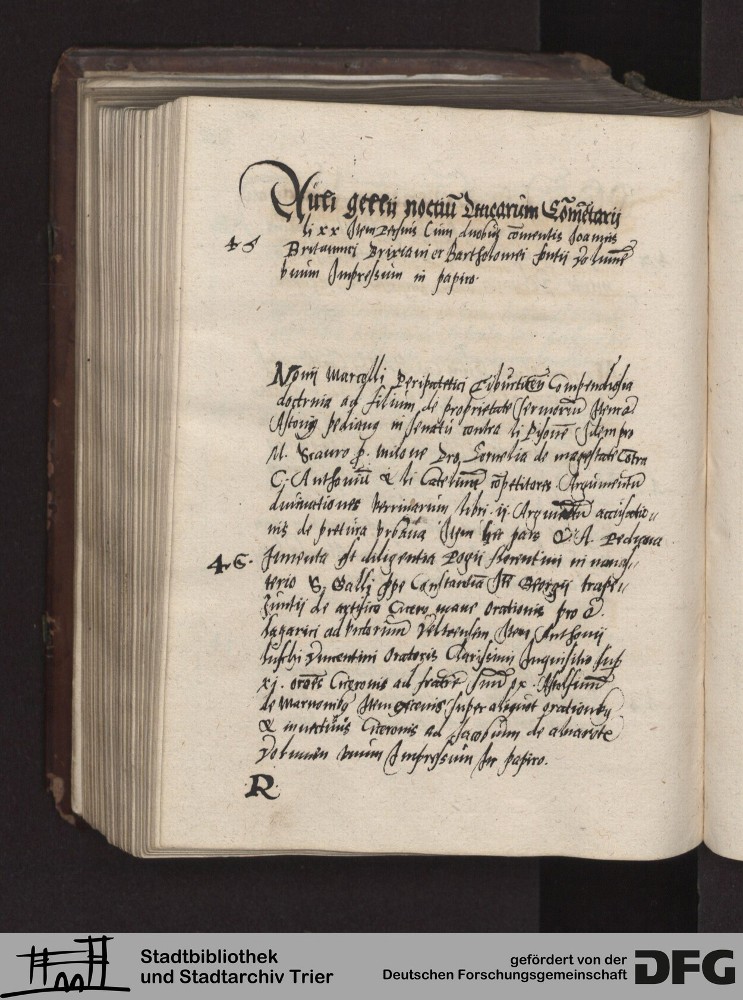 Auli gellij noctiũ Atticarum Cõmẽtarij
li xx Item Persius Cum duobus cõmentis Joannis
4 5 Britannici Brixiani et Bartholomei fontij Volumẽ
vnum Impressum in papiro.
Nonij Marcelli Peripatetici Tiburticẽsis Compendiosa
doctrina ad filium de proprietate sermonũ Item
Asconij pediani in senatu contra li Pisonẽ Idem pro
M. Scauro p. milone Pro Cornelio de magestate Cõtra
C. Anthoniũ & li Catelinã cõpetitores Argumentũ
diuinationes Verrinarum libri ij Argumẽtũ accusatio-
nis de pretura vrbana Item hec pars Q. A. Pediana
4 6. Inuenta est diligentia Pogij florentini in mona-
terio S. Galli ope Constantiã Itẽ Georgij trape-
zuntij de artificio Ciceroniane Orationis pro Q.
ligario ad victorium Veltrensem Item Anthonij
luschi Vincentini Oratoris Clarissimi Inquisitio sup
xj. orões Ciceronis ad fratrẽ suũ
de Marnonibus Item super aliquot orationibus
& inuectiuis Ciceronis ad Jacobum de aluarote
Volumen vnum Impressum In papiro.
R
Stadtbibliothek
und Stadtarchiv Trier
gefördert von der
Deutschen Forschungsgemeinschaft
DFG